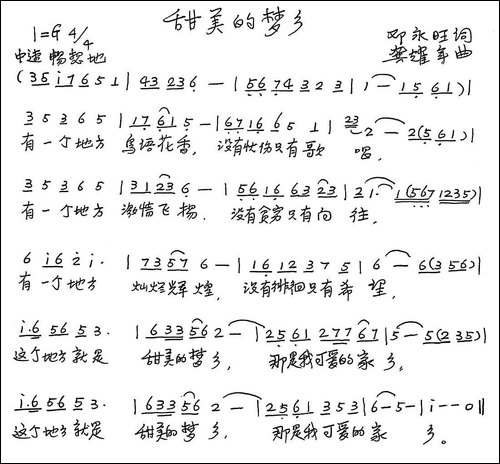 甜美的梦乡
1=G 4/4
邓永旺词
中速 畅想地
龚耀年曲
(3 5 i 7 6 5 1 | 4 3 2 3 6 · — | 5 6 7 4 3 2 3 | 1 — 1 5 6 1) |
3 5 3 6 5 | 1 7 6 1 5 — | 6 7 1 6 6 5 1 | 23 2 — 2 (5 6 1) |
有一个地方 鸟语花香, 没有忧伤只有歌 唱,
3 5 3 6 5 | 3 1 2 3 6 — | 5 6 1 6 6 3 2 3 | 2 1 · 1 (5 6 7 1 2 3 5) |
有一个地方 激情飞扬, 没有贪穷只有向 往,
6 i 6 2 i · | 7 3 5 7 6 — | 1 6 1 2 3 7 5 | 6 — 6 (3 5 6) |
有一个地方 灿烂辉煌, 没有徘徊只有希 望,
i · 6 5 6 5 3 · | 6 3 3 5 6 2 — | 2 5 6 1 2 7 7 6 7 | 5 — 5 (2 3 5) |
这个地方就是 甜美的梦乡, 那是我可爱的家 乡。
i · 6 5 6 5 3 · | 6 3 3 5 6 2 — | 2 5 6 1 3 5 3 | 6 — 5 — | i — — 0 ‖
这个地方就是 甜美的梦乡, 那是我可爱的家 乡。